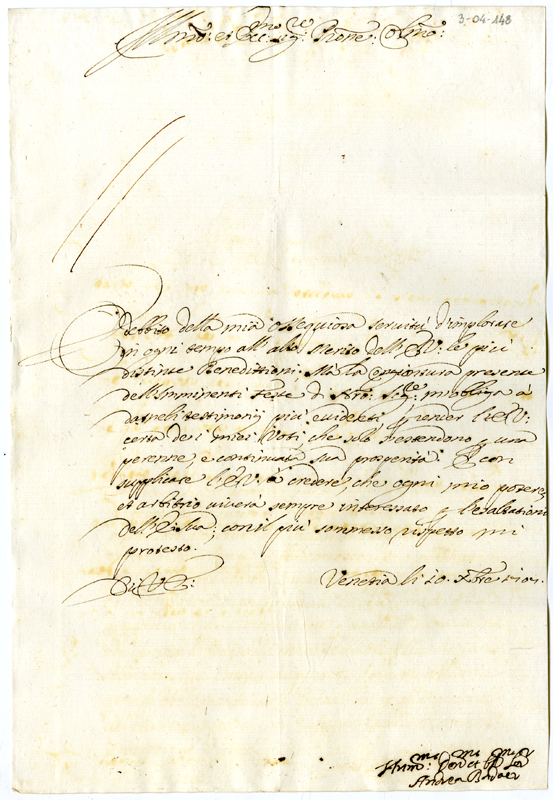 3-04-148
Illmo: et Ecc:mo Sig:re Prone: Colmo:
È debbito della mia ossequiosa servitù d'implorare
in ogni tempo all'alto Merito dell'E:V: le più
distinte Benedittioni, Mà la congiontura presente
dell'Imminenti Feste di Nro: Sig:re m'obliga à
darneli testimonij più evidenti, render l'E:V:
certa de i miei Voti, che solo tendono una
perenne, e continuata sua prosperità. E con
supplicare l'E:V: à credere, che ogni mio potere,
et arbitrio viverà sempre interessato l'esaltationi
dell'E: Sua; con il più sommesso rispetto mi
protesto.
Di V:E:
Venetia li 20. Xbre 1704.
Humma: Devma et
Andrea